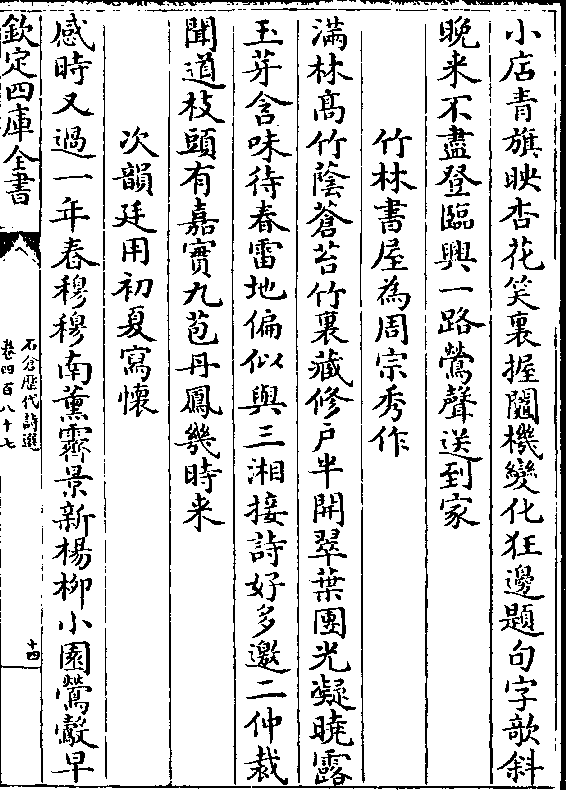 小店青旗映杏花笑裏握鬮機變化狂邊題句字欹斜
晚来不盡登臨興一路鶯聲送到家
竹林書屋為周宗秀作
滿林髙竹蔭蒼苔竹裏藏修户半開翠葉團光凝曉露
玉芽含味待春雷地偏似與三湘接詩好多邀二仲裁
聞道枝頭有嘉實九苞丹鳳幾時来
次韻廷用初夏寫懷
感時又過一年春穆穆南薰霽景新楊柳小園鶯鷇早
欽定四庫全書
石倉歷代詩選
卷四百八十七
十四